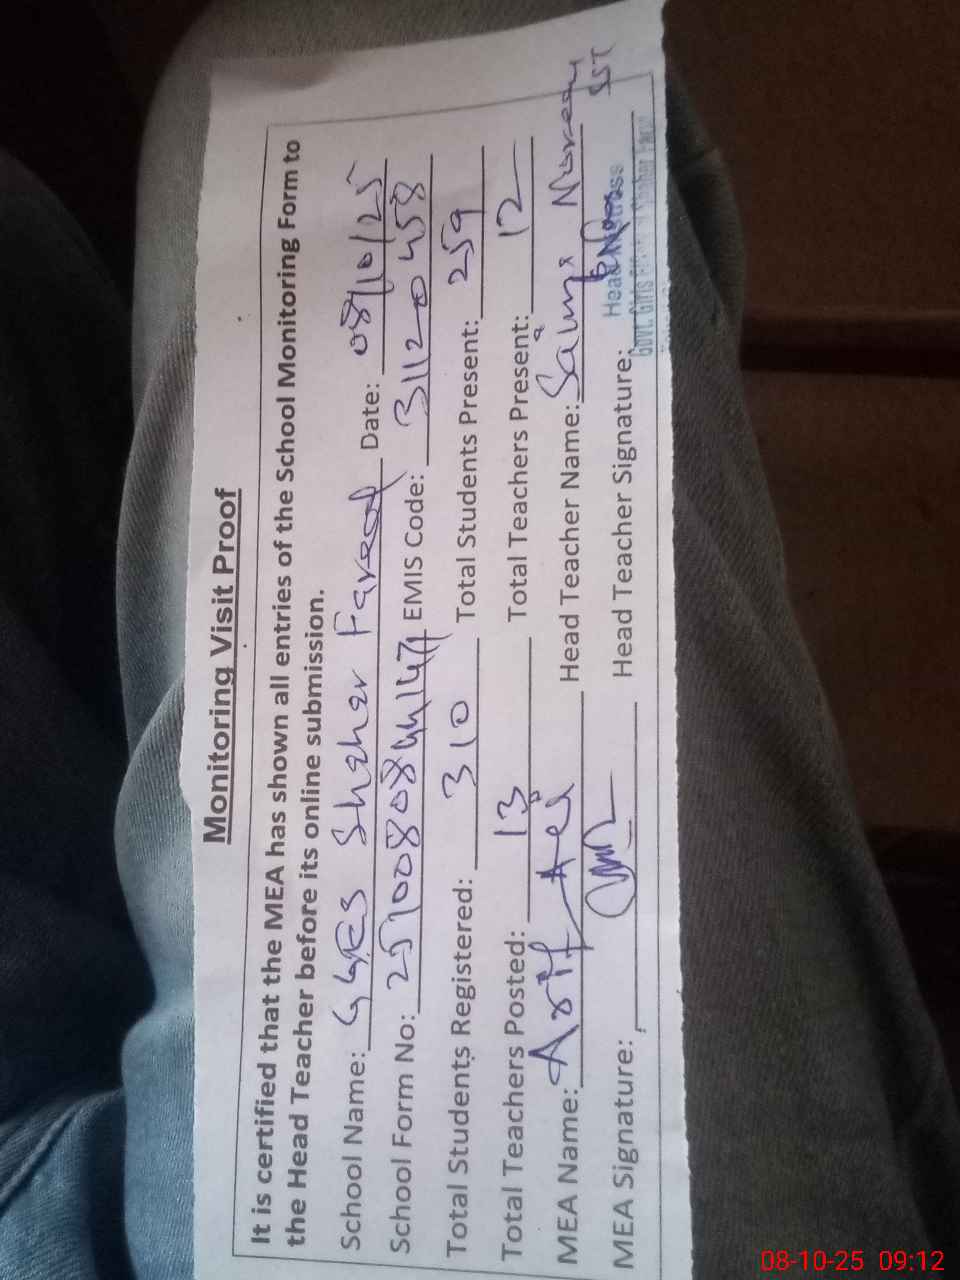 Monitoring Visit Proof
It is certified that the MEA has shown all entries of the School Monitoring Form to
the Head Teacher before its online submission.
School Name: GGES Shaher Fareed Date: 08/10/25
School Form No: EMIS Code: 31120458
Total Students Registered: 310 Total Students Present: 259
Total Teachers Posted: 13 Total Teachers Present: 12
MEA Name: Arif Head Teacher Name: SST
MEA Signature: Head Teacher Signature:
Head
Govt. Girls
08-10-25 09:12